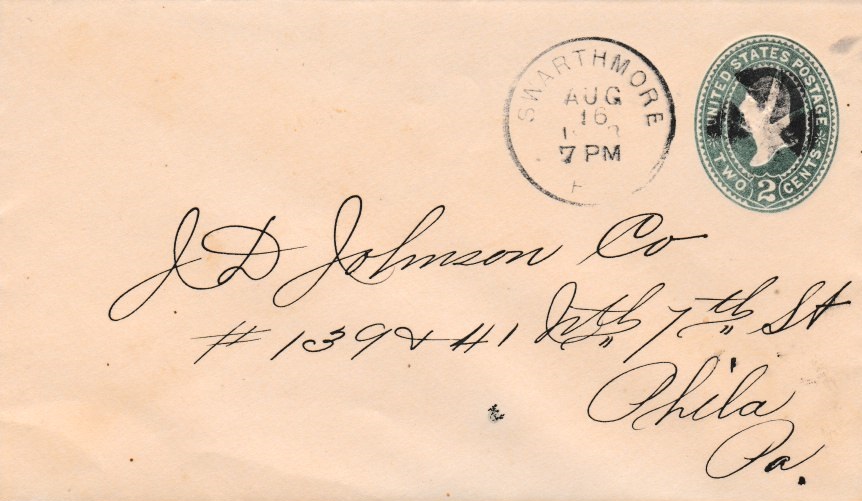 SWARTHMORE
AUG
16
7 PM
UNITED STATES POSTAGE
TWO 2 CENTS
J D Johnson Co
# 139 & 41 Nth 7th St
Phila
Pa.